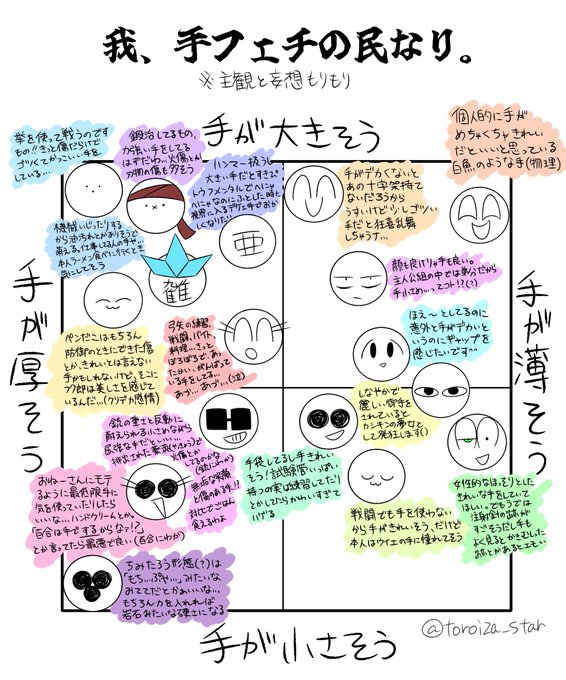 我、手フェチの民なり。
※主観と妄想もりもり
手が大きそう
拳を使って戦うのです
もの!!きっと傷だらけで
ゴツくてかっこいい手を
している…
鍛冶してるもの、
力強い手をしてる
はずだわ…火傷とか
刃物の傷も多そう
ハンマー扱う
大きい手だとすてき
個人的に手が
めちゃくちゃきれい
だといいと思っている
白魚のような手(物理)
手がデカくないと
あの十字架持て
ないだろうから
うすいけど少しゴツい
手だと狂喜乱舞
しちゃうナ…
機械いじったりする
から油汚れとかありそうで
萌える。仕事してる人の手や…
本人ラーメン食べに行くとき
気にしてそう
亜
雑
顔も良けりゃ手も良い。
主人公組の中では華奢だから
手小さめ…ってコト!?(?)
手が厚そう
手が薄そう
ほえ〜としてるのに
意外と手がデカい
というのにギャップを
感じたいです〜
ペンだこはもちろん
防衛のときにできた傷
とか、きれいとは言えない
手かもしれないけど、そこに
ワ郎は美しさを感じて
いるんだ…(クリデカ感情)
弓矢の練習、
戦闘、バイト、
料理…きっと
ぼろぼろで、あっ
たかい、がんばって
いる手をしてる…
あづ…あづ…(泣)
しなやかで
麗しい御手を
されていると
カンキンの夢女と
して発狂します()
銃の重さと反動に
耐えられる小さめながら
手袋してるし手きれい
そう!試験管いっぱい
持つの実は練習してたり
とかしてたらかわいすぎて
ハゲる
おねーさんにモテ
るように最低限手に
気を使っていたりしたら
いいな…ハンドクリームとか。
「百合は手でするからな!?」
とか言ってたら最悪で良い(百合にわか)
戦闘でも手を使わない
から手がきれいそう、だけど
本人はウイエの手に憧れてそう
女性的なほっそりとした
きれいな手をしていて
ほしい。でもうでは
注射針の跡が
すごそうだし手も
よく見るとかさむした
跡とかあるとエモい
ちみたろう形態(?)は
「もち…ぷや…」みたいな
おててだとかわいいな…
もちろん力を入れれば
岩石みたいな硬さになる
手が小さそう
@toroiza_star